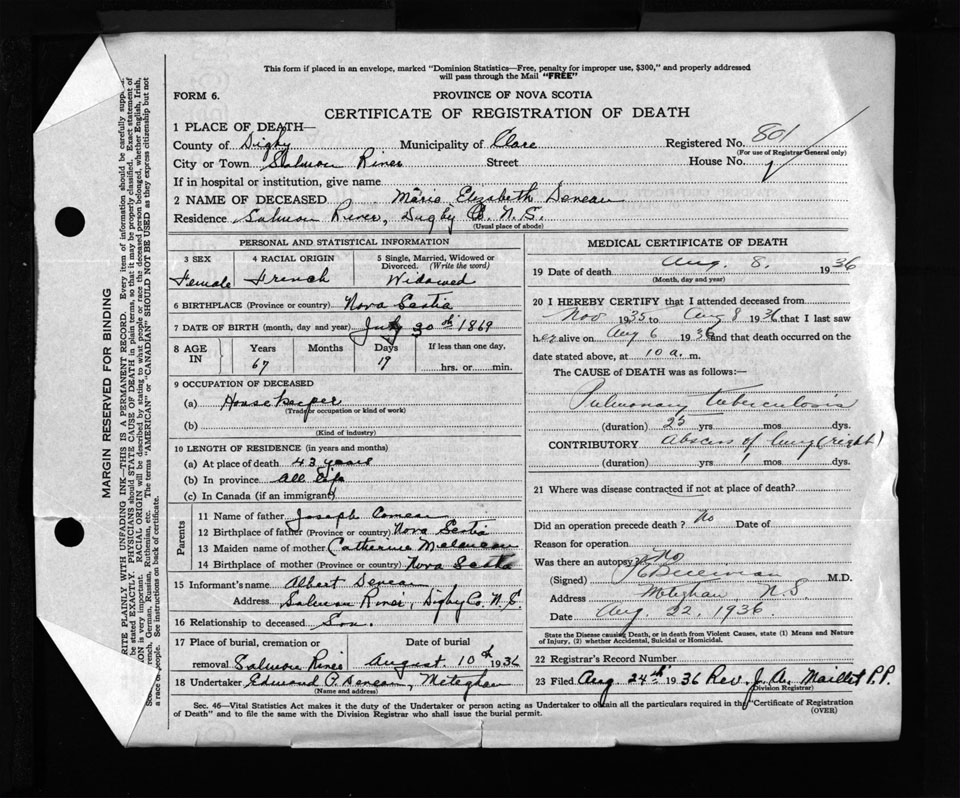 This form if placed in an envelope, marked "Dominion Statistics—Free, penalty for improper use, $300," and properly addressed
will pass through the Mail "FREE"
FORM 6.
PROVINCE OF NOVA SCOTIA
CERTIFICATE OF REGISTRATION OF DEATH
1 PLACE OF DEATH—
County of Digby Municipality of Clare Registered No. 801
(For use of Registrar General only)
City or Town Salmon River Street House No.
If in hospital or institution, give name
2 NAME OF DECEASED Marie Elizabeth Deneau
Residence Salmon River, Digby Co. N.S.
(Usual place of abode)
PERSONAL AND STATISTICAL INFORMATION
3 SEX 4 RACIAL ORIGIN 5 Single, Married, Widowed or Divorced. (Write the word)
Female French Widowed
6 BIRTHPLACE (Province or country) Nova Scotia
7 DATE OF BIRTH (month, day and year) July 20th 1869
8 AGE IN Years Months Days If less than one day,
67 19 hrs. or min.
9 OCCUPATION OF DECEASED
(a) Housekeeper
(Trade or occupation or kind of work)
(b)
(Kind of industry)
10 LENGTH OF RESIDENCE (in years and months)
(a) At place of death 43 years
(b) In province all life
(c) In Canada (if an immigrant)
Parents
11 Name of father Joseph Comeau
12 Birthplace of father (Province or country) Nova Scotia
13 Maiden name of mother Catherine Melanson
14 Birthplace of mother (Province or country) Nova Scotia
15 Informant's name Albert Deneau
Address Salmon River, Digby Co. N.S.
16 Relationship to deceased Son.
17 Place of burial, cremation or Date of burial
removal Salmon River August 10th 1936
18 Undertaker Edmond P. Deneau, Meteghan
(Name and address)
MEDICAL CERTIFICATE OF DEATH
19 Date of death Aug. 8. 1936
(Month, day and year)
20 I HEREBY CERTIFY that I attended deceased from
Nov 1935 to Aug 8 1936 that I last saw
her alive on Aug 6 1936 and that death occurred on the
date stated above, at 10 a. m.
The CAUSE of DEATH was as follows:—
Pulmonary tuberculosis
(duration) 25 yrs. mos. dys.
CONTRIBUTORY Abscess of lung (right)
(duration) yrs. mos. dys.
21 Where was disease contracted if not at place of death?
Did an operation precede death? No Date of
Reason for operation
Was there an autopsy? No
(Signed) M.D.
Address Meteghan, N.S.
Date Aug 22, 1936
State the Disease causing Death, or in death from Violent Causes, state (1) Means and Nature
of Injury, (2) whether Accidental, Suicidal or Homicidal.
22 Registrar's Record Number
23 Filed Aug 24th 1936 Rev. J. A. Maillet P.P.
Division Registrar)
Sec. 46—Vital Statistics Act makes it the duty of the Undertaker or person acting as Undertaker to obtain all the particulars required in the "Certificate of Registration
of Death" and to file the same with the Division Registrar who shall issue the burial permit. (OVER)
MARGIN RESERVED FOR BINDING
RITE PLAINLY WITH UNFADING INK—THIS IS A PERMANENT RECORD. Every item of information should be carefully supp
be stated EXACTLY. PHYSICIANS should STATE CAUSE OF DEATH in plain terms, so that it may be properly classified. Exact statement of
ON is very important. RACIAL ORIGIN will be described by stating to what people or race the deceased person belonged, whether English, Irish,
rench, German, Russian, Ruthenian, etc. The terms "AMERICAN" or "CANADIAN" SHOULD NOT BE USED as they express citizenship but not
a race or people. See instructions on back of certificate.